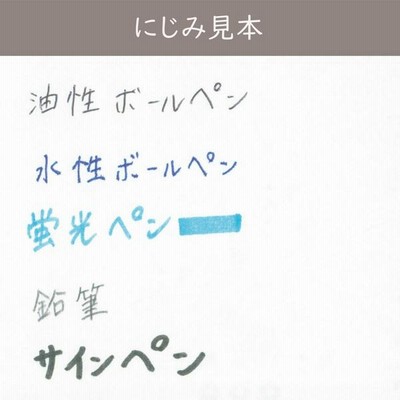 にじみ見本
油性ボールペン
水性ボールペン
蛍光ペン
鉛筆
サインペン